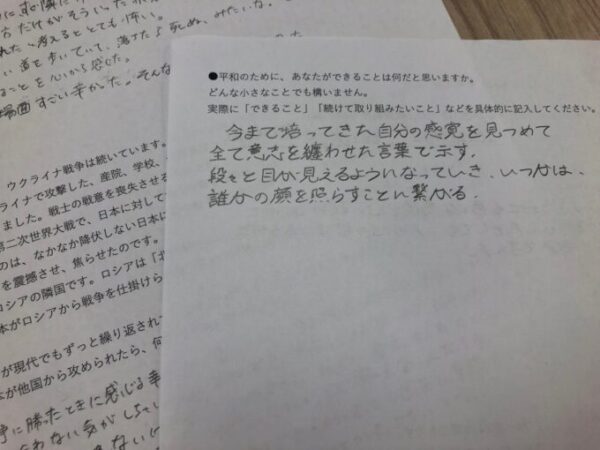 た。考えるととても怖い。
い道を歩いていて、落ちたら死ぬ、みたいな。
ることを心から感じた。
場面すごい辛かった。そんな
ウクライナ戦争は続いています。
ライナで攻撃した、産院、学校、
ました。戦士の戦意を喪失させる
第二次世界大戦で、日本に対して
のは、なかなか降伏しない日本に
を震撼させ、焦らせたのです。
ロシアの隣国です。ロシアは「北
本がロシアから戦争を仕掛けら
が現代でもずっと繰り返されて
本が他国から攻められたら、何
争に勝ったときに感じる幸
●平和のために、あなたができることは何だと思いますか。
どんな小さなことでも構いません。
実際に「できること」「続けて取り組みたいこと」などを具体的に記入してください。
今まで培ってきた自分の感覚を見つめて
全て意志を纏わせた言葉で示す.
段々と目が見えるようになっていき、いつかは、
誰かの顔を照らすことに繋がる.